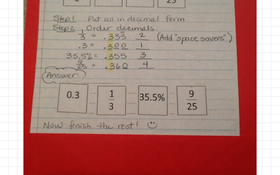 25
Step 1 Put all in decimal form
Step 2 Order decimals
1/3 = .333 2 (Add "space savers")
.3 = .300 1
35.5% = .355 3
9/25 = .360 4
Answer:
0.3 1/3 35.5% 9/25
Now finish the rest! ☺